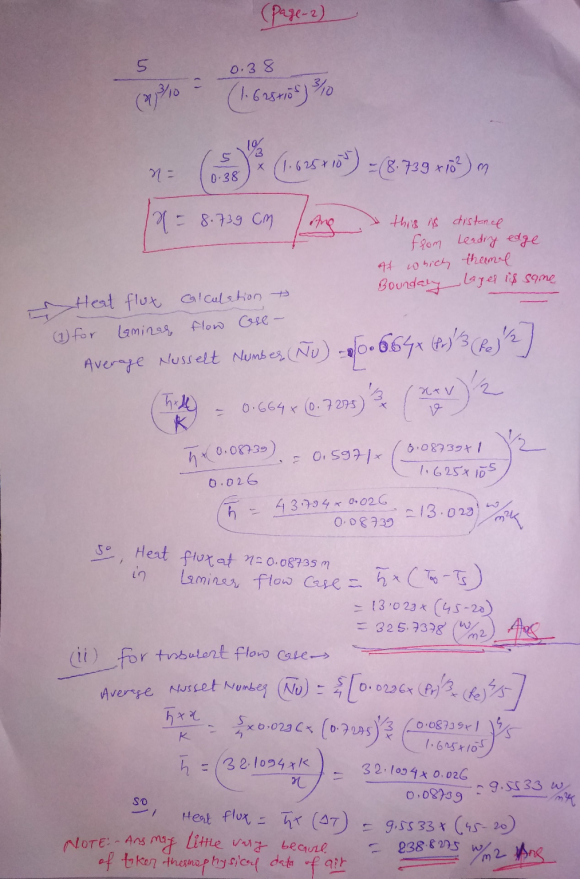 (Page-2)
5 / (x)^3/10 = 0.38 / (1.625×10^-5)^3/10
x = (5/0.38)^10/3 × (1.625×10^-5) = (8.739×10^-2) m
x = 8.739 cm Ans
this is distance
from leading edge
at which thermal
Boundary layer is same
Heat flux calculation →
(i) for Laminar flow Case -
Average Nusselt Number (N̄u) = [0.664× (Pr)^1/3 (Re)^1/2]
(h̄×x / K) = 0.664 × (0.7275)^1/3 × (x×V / ν)^1/2
h̄×(0.08739) / 0.026 = 0.5971 × (0.08739×1 / 1.625×10^-5)^1/2
h̄ = 43.794×0.026 / 0.08739 = 13.029 w/m²K
so, Heat flux at x=0.08739 m
in Laminar flow Case = h̄ × (T∞ - Ts)
= 13.029× (45-20)
= 325.7378 (w/m2) Ans
(ii) for turbulent flow case →
Average Nusselt Number (N̄u) = 5/4 [0.0296× (Pr)^1/3 × (Re)^4/5]
h̄×x / K = 5/4 ×0.0296× (0.7275)^1/3 × (0.08739×1 / 1.625×10^5)^4/5
h̄ = (32.1094×K / x) = 32.1094×0.026 / 0.08739 = 9.5533 w/m²K
so, Heat flux = h̄× (ΔT) = 9.5533 × (45-20)
= 238.8275 w/m2 Ans
NOTE:- Ans may Little vary because
of taken thermophysical data of air